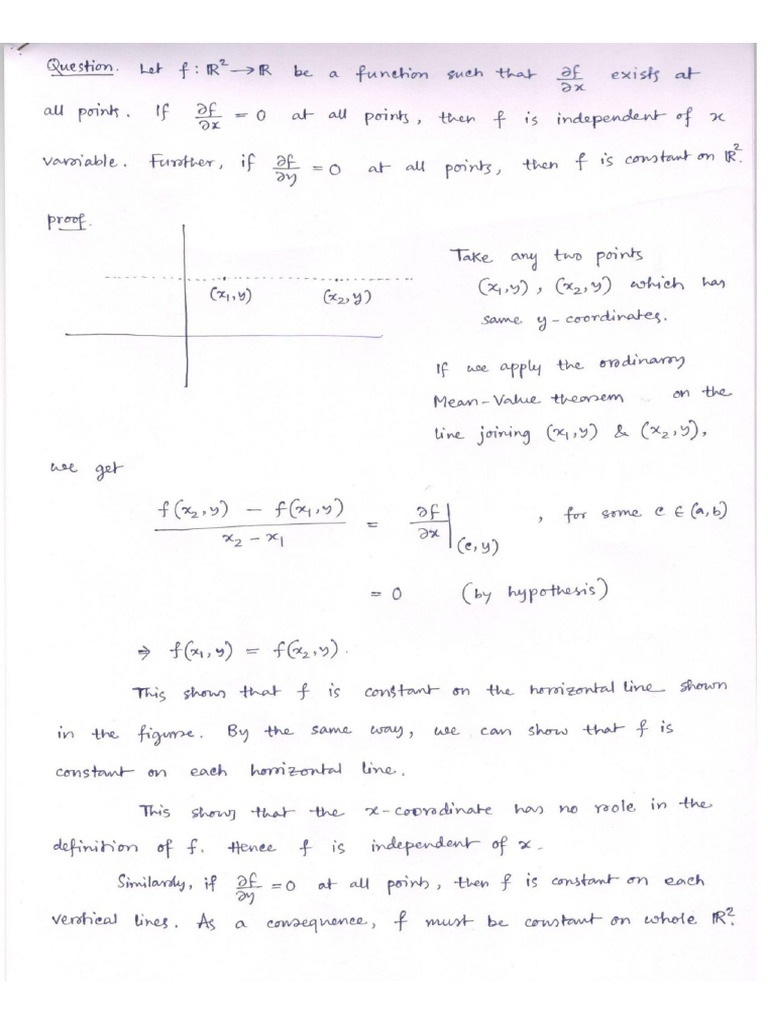 Question. Let f : ℝ² → ℝ be a function such that ∂f/∂x exists at
all points. If ∂f/∂x = 0 at all points, then f is independent of x
variable. Further, if ∂f/∂y = 0 at all points, then f is constant on ℝ².
proof.
(x₁,y) (x₂,y)
Take any two points
(x₁,y), (x₂,y) which has
same y-coordinates.
If we apply the ordinary
Mean-Value theorem on the
line joining (x₁,y) & (x₂,y),
we get
(f(x₂,y) − f(x₁,y))/(x₂ − x₁) = ∂f/∂x|(c,y) , for some c ∈ (a,b)
= 0 (by hypothesis)
⇒ f(x₁,y) = f(x₂,y).
This shows that f is constant on the horizontal line shown
in the figure. By the same way, we can show that f is
constant on each horizontal line.
This shows that the x-coordinate has no role in the
definition of f. Hence f is independent of x.
Similarly, if ∂f/∂y = 0 at all points, then f is constant on each
vertical lines. As a consequence, f must be constant on whole ℝ².